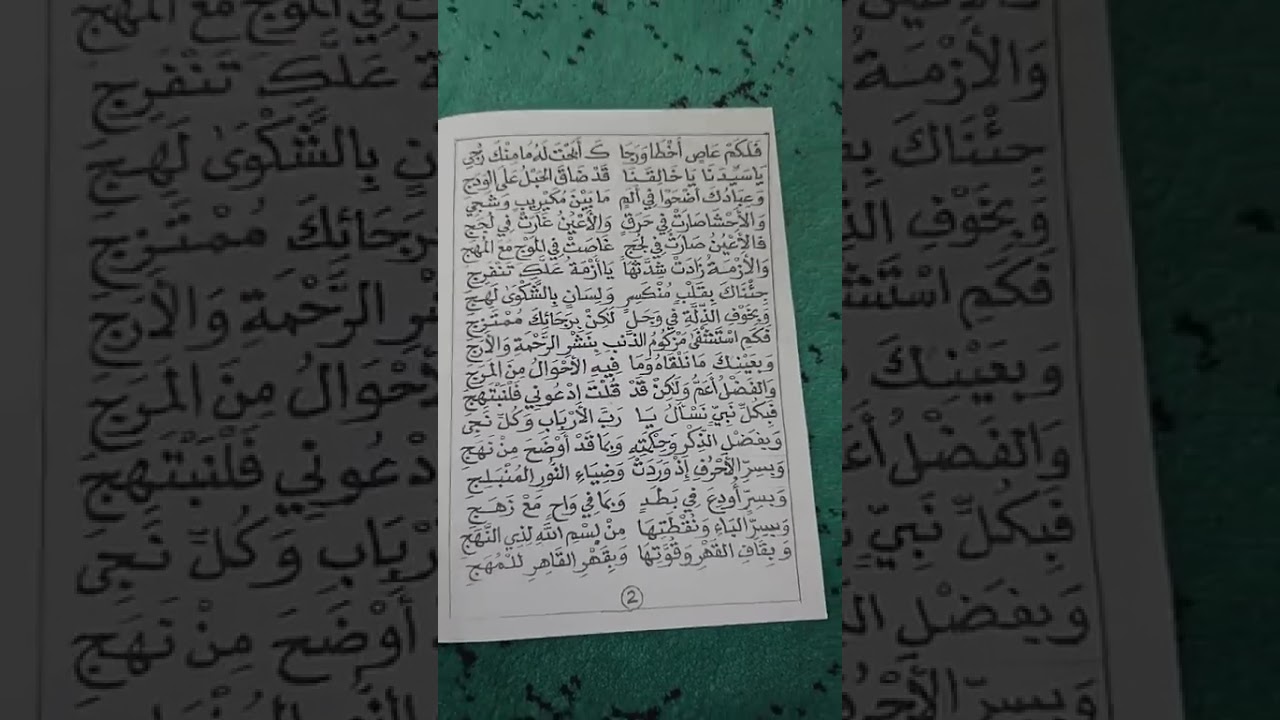 فَلَكَمْ عَاصٍ أَخْطَا وَرَجَا كَ أَبَحْتَ لَهُ مَا مِنْكَ رُجِى
يَا سَيِّدَنَا يَا خَالِقَنَا قَدْ ضَاقَ الحَبْلُ عَلَى الوَدَجِ
وَعِبَادُكَ أَضْحَوْا فِي أَلَمٍ مَا بَيْنَ مُكَيْرِيبٍ وَشَجِي
وَالأَحْشَا صَارَتْ فِي حَرَقٍ وَالأَعْيُنُ غَارَتْ فِي لُجَجِ
فَالأَعْيُنُ صَارَتْ فِي لُجَجٍ غَاصَتْ فِي المَوْجِ مَعَ المُهَجِ
وَالأَزْمَةُ زَادَتْ شِدَّتُهَا يَا أَزْمَةُ عَلَّكِ تَنْفَرِجِ
جِئْنَاكَ بِقَلْبٍ مُنْكَسِرٍ وَلِسَانٍ بِالشَّكْوَىٰ لَهِجِ
وَبِخَوْفِ الذِّلَّةِ فِي وَجَلٍ لَكِنْ بِرَجَائِكَ مُمْتَزِجِ
فَكَمِ اسْتَشْفَىٰ مَزْكُومُ الذَّنْبِ بِنَشْرِ الرَّحْمَةِ وَالأَرَجِ
وَبِعَيْنِكَ مَا نَلْقَاهُ وَمَا فِيهِ الأَحْوَالُ مِنَ المَرَجِ
وَالفَضْلُ أَعَمُّ وَلَكِنْ قَدْ قُلْتَ ادْعُونِي فَلْنَبْتَهِجِ
فَبِكُلِّ نَبِيٍّ نَسْأَلُ يَا رَبَّ الأَرْبَابِ وَكُلِّ نَجِى
وَبِفَضْلِ الذِّكْرِ وَحِكْمَتِهِ وَبِمَا قَدْ أَوْضَحَ مِنْ نَهَجِ
وَبِسِرِّ الأَحْرُفِ إِذْ وَرَدَتْ وَضِيَاءِ النُّورِ المُنْبَلِجِ
وَبِسِرٍّ أُودِعَ فِي بَطَدٍ وَبِمَا فِي وَاحٍ مَعْ زَهَجِ
وَبِسِرِّ البَاءِ وَنُقْطَتِهَا مِنْ بِسْمِ اللَّهِ لِذِي النَّهَجِ
وَبِقَافِ القَهْرِ وَقُوَّتِهَا وَبِقَهْرِ القَاهِرِ لِلْمُهَجِ
2